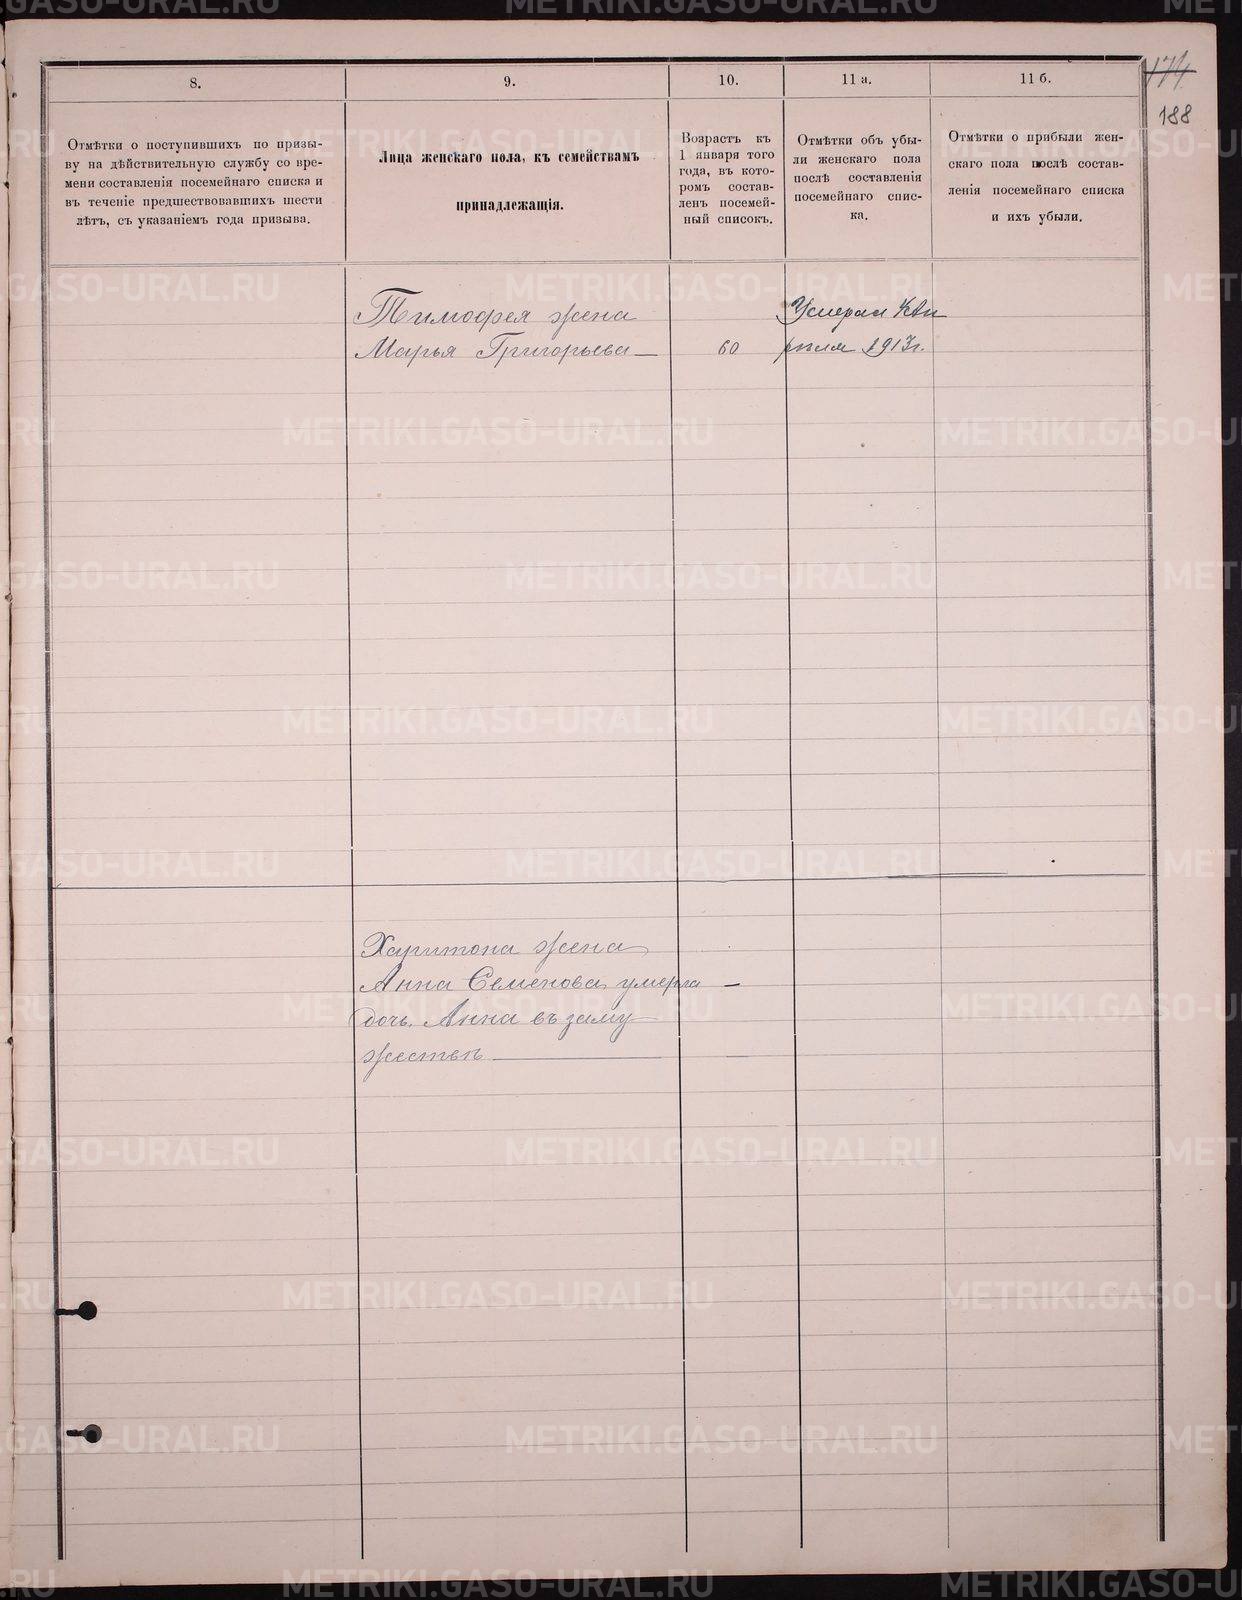 174
188
8.
9.
10.
11 а.
11 б.
Отмѣтки о поступившихъ по призы-
ву на дѣйствительную службу со вре-
мени составленія посемейнаго списка и
въ теченіе предшествовавшихъ шести
лѣтъ, съ указаніемъ года призыва.
Лица женскаго пола, къ семействамъ
принадлежащія.
Возрастъ къ
1 января того
года, въ кото-
ромъ состав-
ленъ посемей-
ный списокъ.
Отмѣтки объ убы-
ли женскаго пола
послѣ составленія
посемейнаго спис-
ка.
Отмѣтки о прибыли жен-
скаго пола послѣ состав-
ленія посемейнаго списка
и ихъ убыли.
Тимофея жена
Марья Григорьева 60
Умерла
1913г.
Харитона жена
Анна Семенова умерла
дочь Анна въ заму
жествѣ
METRIKI.GASO-URAL.RU